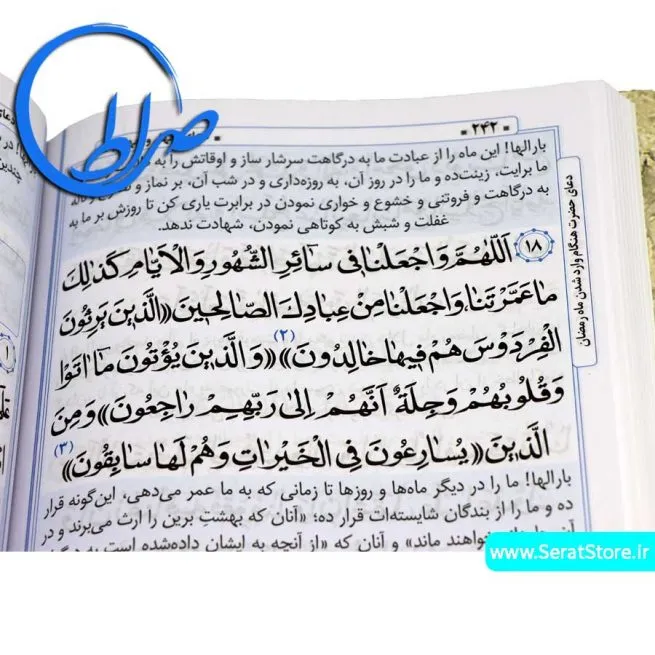 صراط
▪ ۲۴۲ ▪
بارالها! این ماه را از عبادت ما به درگاهت سرشار ساز و اوقاتش را به
ما برایت، زینت‌ده و ما را در روز آن، به روزه‌داری و در شب آن، بر نماز و
به درگاهت و فروتنی و خشوع و خواری نمودن در برابرت یاری کن تا روزش بر ما به
غفلت و شبش به کوتاهی نمودن، شهادت ندهد.
۱۸ اَللّٰهُمَّ وَاجْعَلْنا فی سائِرِ الشُّهُورِ وَالْاَیّامِ کَذٰلِكَ
ما عَمَّرْتَنا، وَاجْعَلْنا مِنْ عِبادِكَ الصّالِحینَ «الَّذینَ یَرِثُونَ
الْفِرْدَوْسَ هُمْ فیها خالِدُونَ» (۲) «وَ الَّذینَ یُؤْتُونَ ما اٰتَوْا
وَ قُلُوبُهُمْ وَجِلَةٌ اَنَّهُمْ اِلیٰ رَبِّهِمْ راجِعُونَ» وَ مِنَ
الَّذینَ «یُسارِعُونَ فِی الْخَیْراتِ وَ هُمْ لَها سابِقُونَ» (۳)
بارالها! ما را در دیگر ماه‌ها و روزها تا زمانی که به ما عمر می‌دهی، این‌گونه قرار
ده و ما را از بندگان شایسته‌ات قرار ده؛ «آنان که بهشتِ برین را ارث می‌برند و در
خواهند ماند» و آنان که «از آنچه به ایشان داده‌شده است به
دعای حضرت هنگام وارد شدن ماه رمضان
www.SeratStore.ir